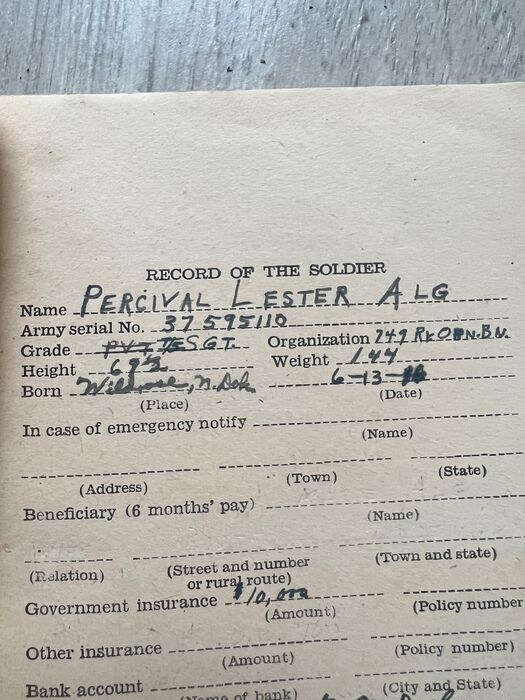 RECORD OF THE SOLDIER
Name PERCIVAL LESTER ALG
Army serial No. 37 595110
Grade PVT SGT Organization 749 Ry OPN. BN.
Height 69½ Weight 144
Born N. Dak 6-13-
(Place) (Date)
In case of emergency notify
(Name)
(Address) (Town) (State)
Beneficiary (6 months' pay)
(Name)
(Relation) (Street and number or rural route) (Town and state)
Government insurance $10,000
(Amount) (Policy number
Other insurance
(Amount) (Policy number)
Bank account
(Name of bank) (City and State)